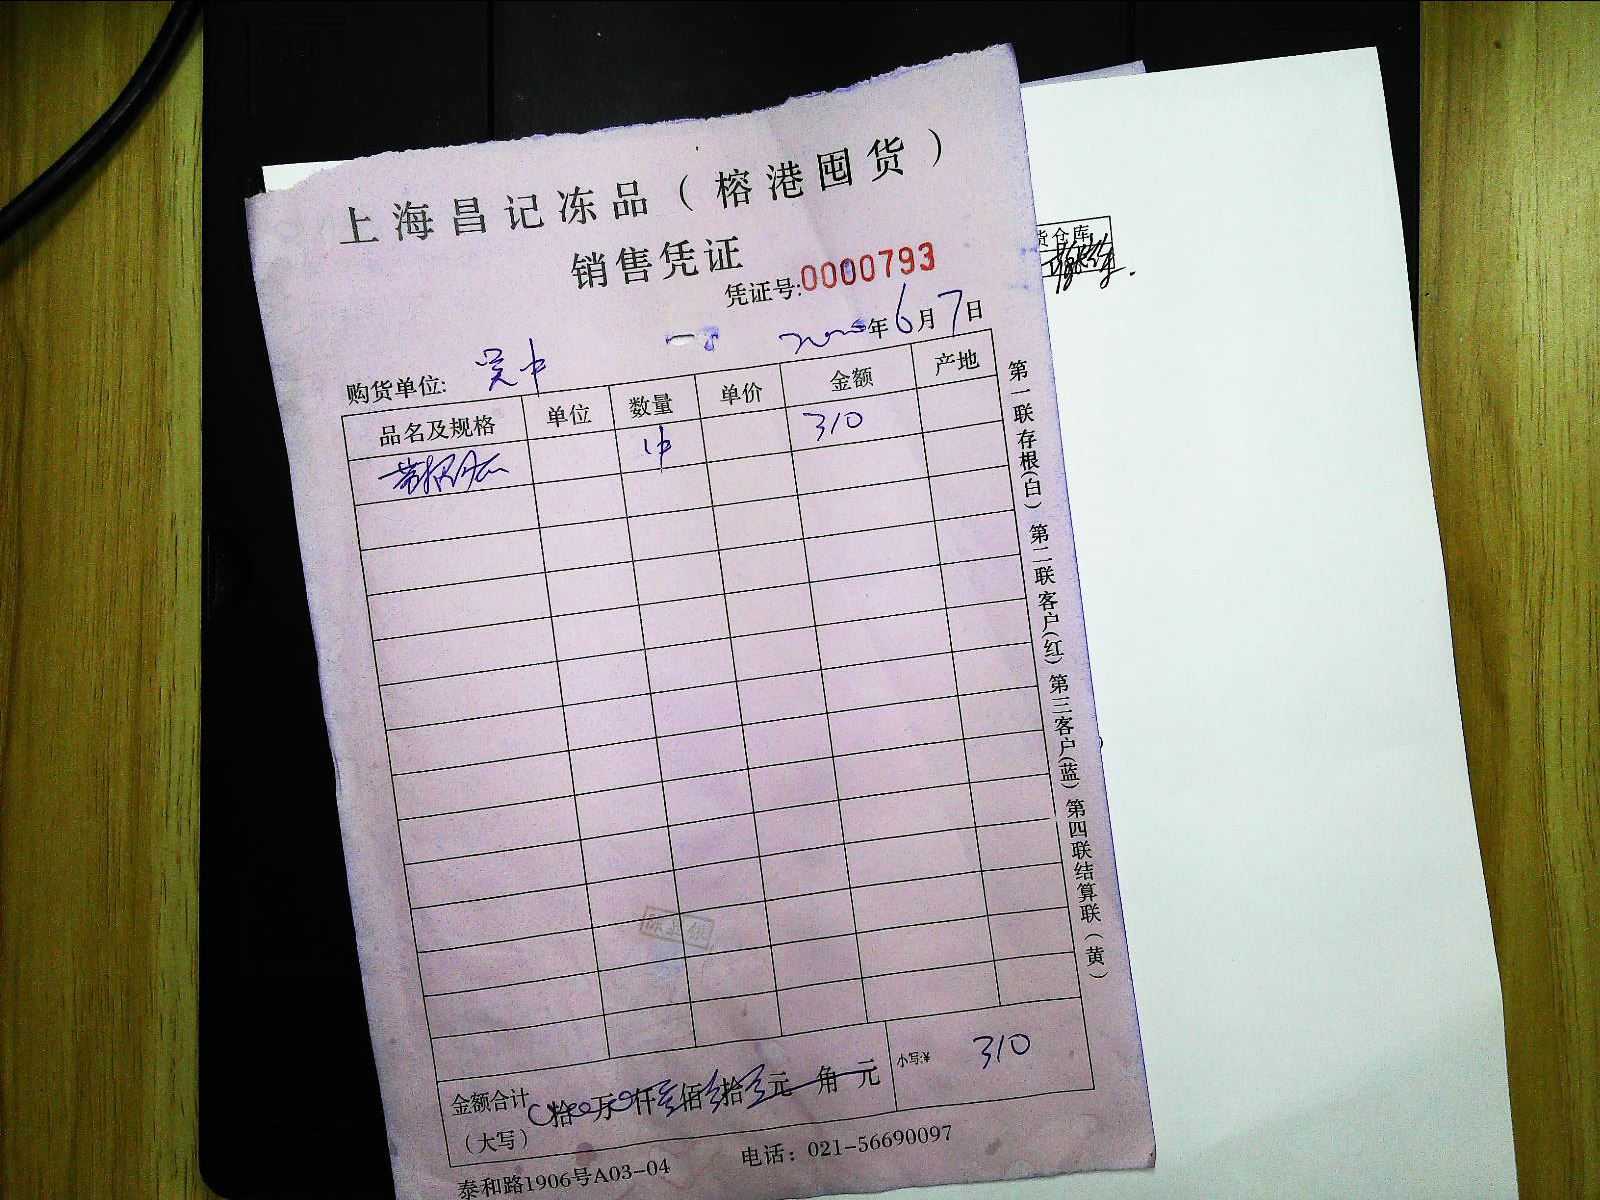 上海昌记冻品（榕港囤货）
销售凭证
凭证号:0000793
年6月7日
购货单位:
品名及规格 单位 数量 单价 金额 产地
310
金额合计 拾 万 仟 佰 拾 元 角 元 小写:¥ 310
（大写）
泰和路1906号A03-04 电话：021-56690097
第一联存根(白) 第二联客户(红) 第三客户(蓝) 第四联结算联(黄)
货仓库